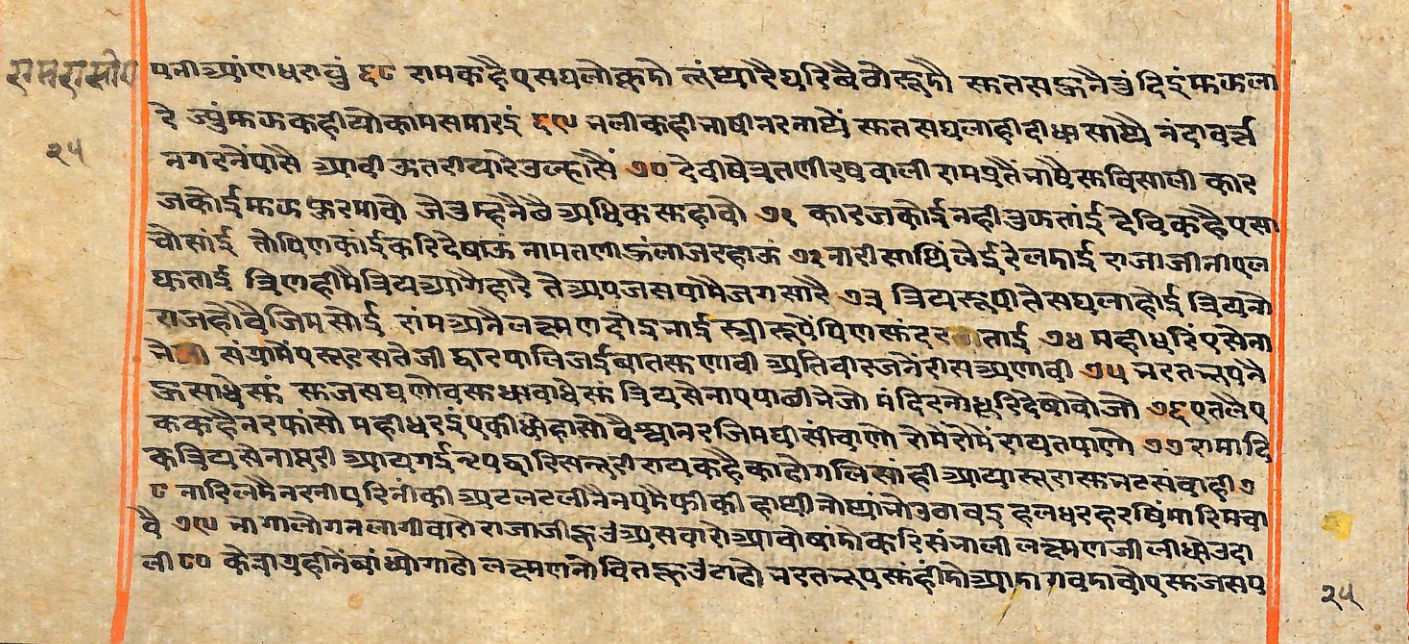 रामरासो
२५
पनीआंणधरावुं ६८ रामकहैएसघलोकूडो तुंम्हारैघरिछैवोरूडो सुतसऊनैतुंदिइंमुझकला
रे ज्युंमुझकहीयोकामसमारइं ६९ भलीकहीभाषीनरनाथैं सुतसघलाहीदीधासाथै नंदावर्त्त
नगरनेंपासै आवी ऊतरीयारेउल्हासैं ७० देवीषेत्रतणीरषवाली रामप्रतैंभाषैसुविसाली कार
जकोईमुझफुरमावो जेतुम्हनैछैअधिकसुहावो ७१ कारजकोईनहीतुझतांई देविकहैएसा
चोसांई तोपिणकांईकरिदेषाऊं नामतणाऊंलाजरहाऊं ७२ नारीसाथिंलेईरेलडाई राजाजीनीएल
घुताई त्रिणहीमैत्रियआगैहारै तेअपजसपांमैजगसारै ७३ त्रियरूपीतेसघलाहोई त्रियनो
राजहोवैजिमसोई रांमअनैलक्ष्मणदोइभाई स्त्रीरूपेंपिणसुंदर ताई ७४ महीधरिंएसेना
भे संग्रामेंएसूरसतेजी द्वारपालिजईबातसुणावी अतिवीरजनेंरीसअणावी ७५ भरतनृपनै
ऊसाधेसुं सुजसघणोवसुधावाधेसुं त्रियसेनाएपाछीभेजो मंदिरनोधुरिदेषोबोजो ७६ एतलैए
ककहैनरफांसो महीधरइंएकीधोहासो वैश्वानरजिमघीसींचाणो रोमेंरोमेंरायतपाणो ७७ रामादि
कत्रियसेनापूरी आयगईनृपद्वारिसनूरी रायकहैकाढोगलिसांही आयासूरासुभटसंबाही ७
८ नारिलमैनरनीपरिनीकी अटलटलीनैनपमैफीकी हाथीनोथांभोउठावइ हलधरहरषिंमारिमचा
वै ७९ भागालोगनलागीवारो राजाजीहूउंअसवारो आवोषांडोकरिसंभाली लक्ष्मणजीलीधोउदा
ली ८० केशग्रहीनेंबांध्योगाढो लक्ष्मणनोचितहूउंटाढो भरतनृपसुंहींडोआडा गवडावोएसुजसप
२५